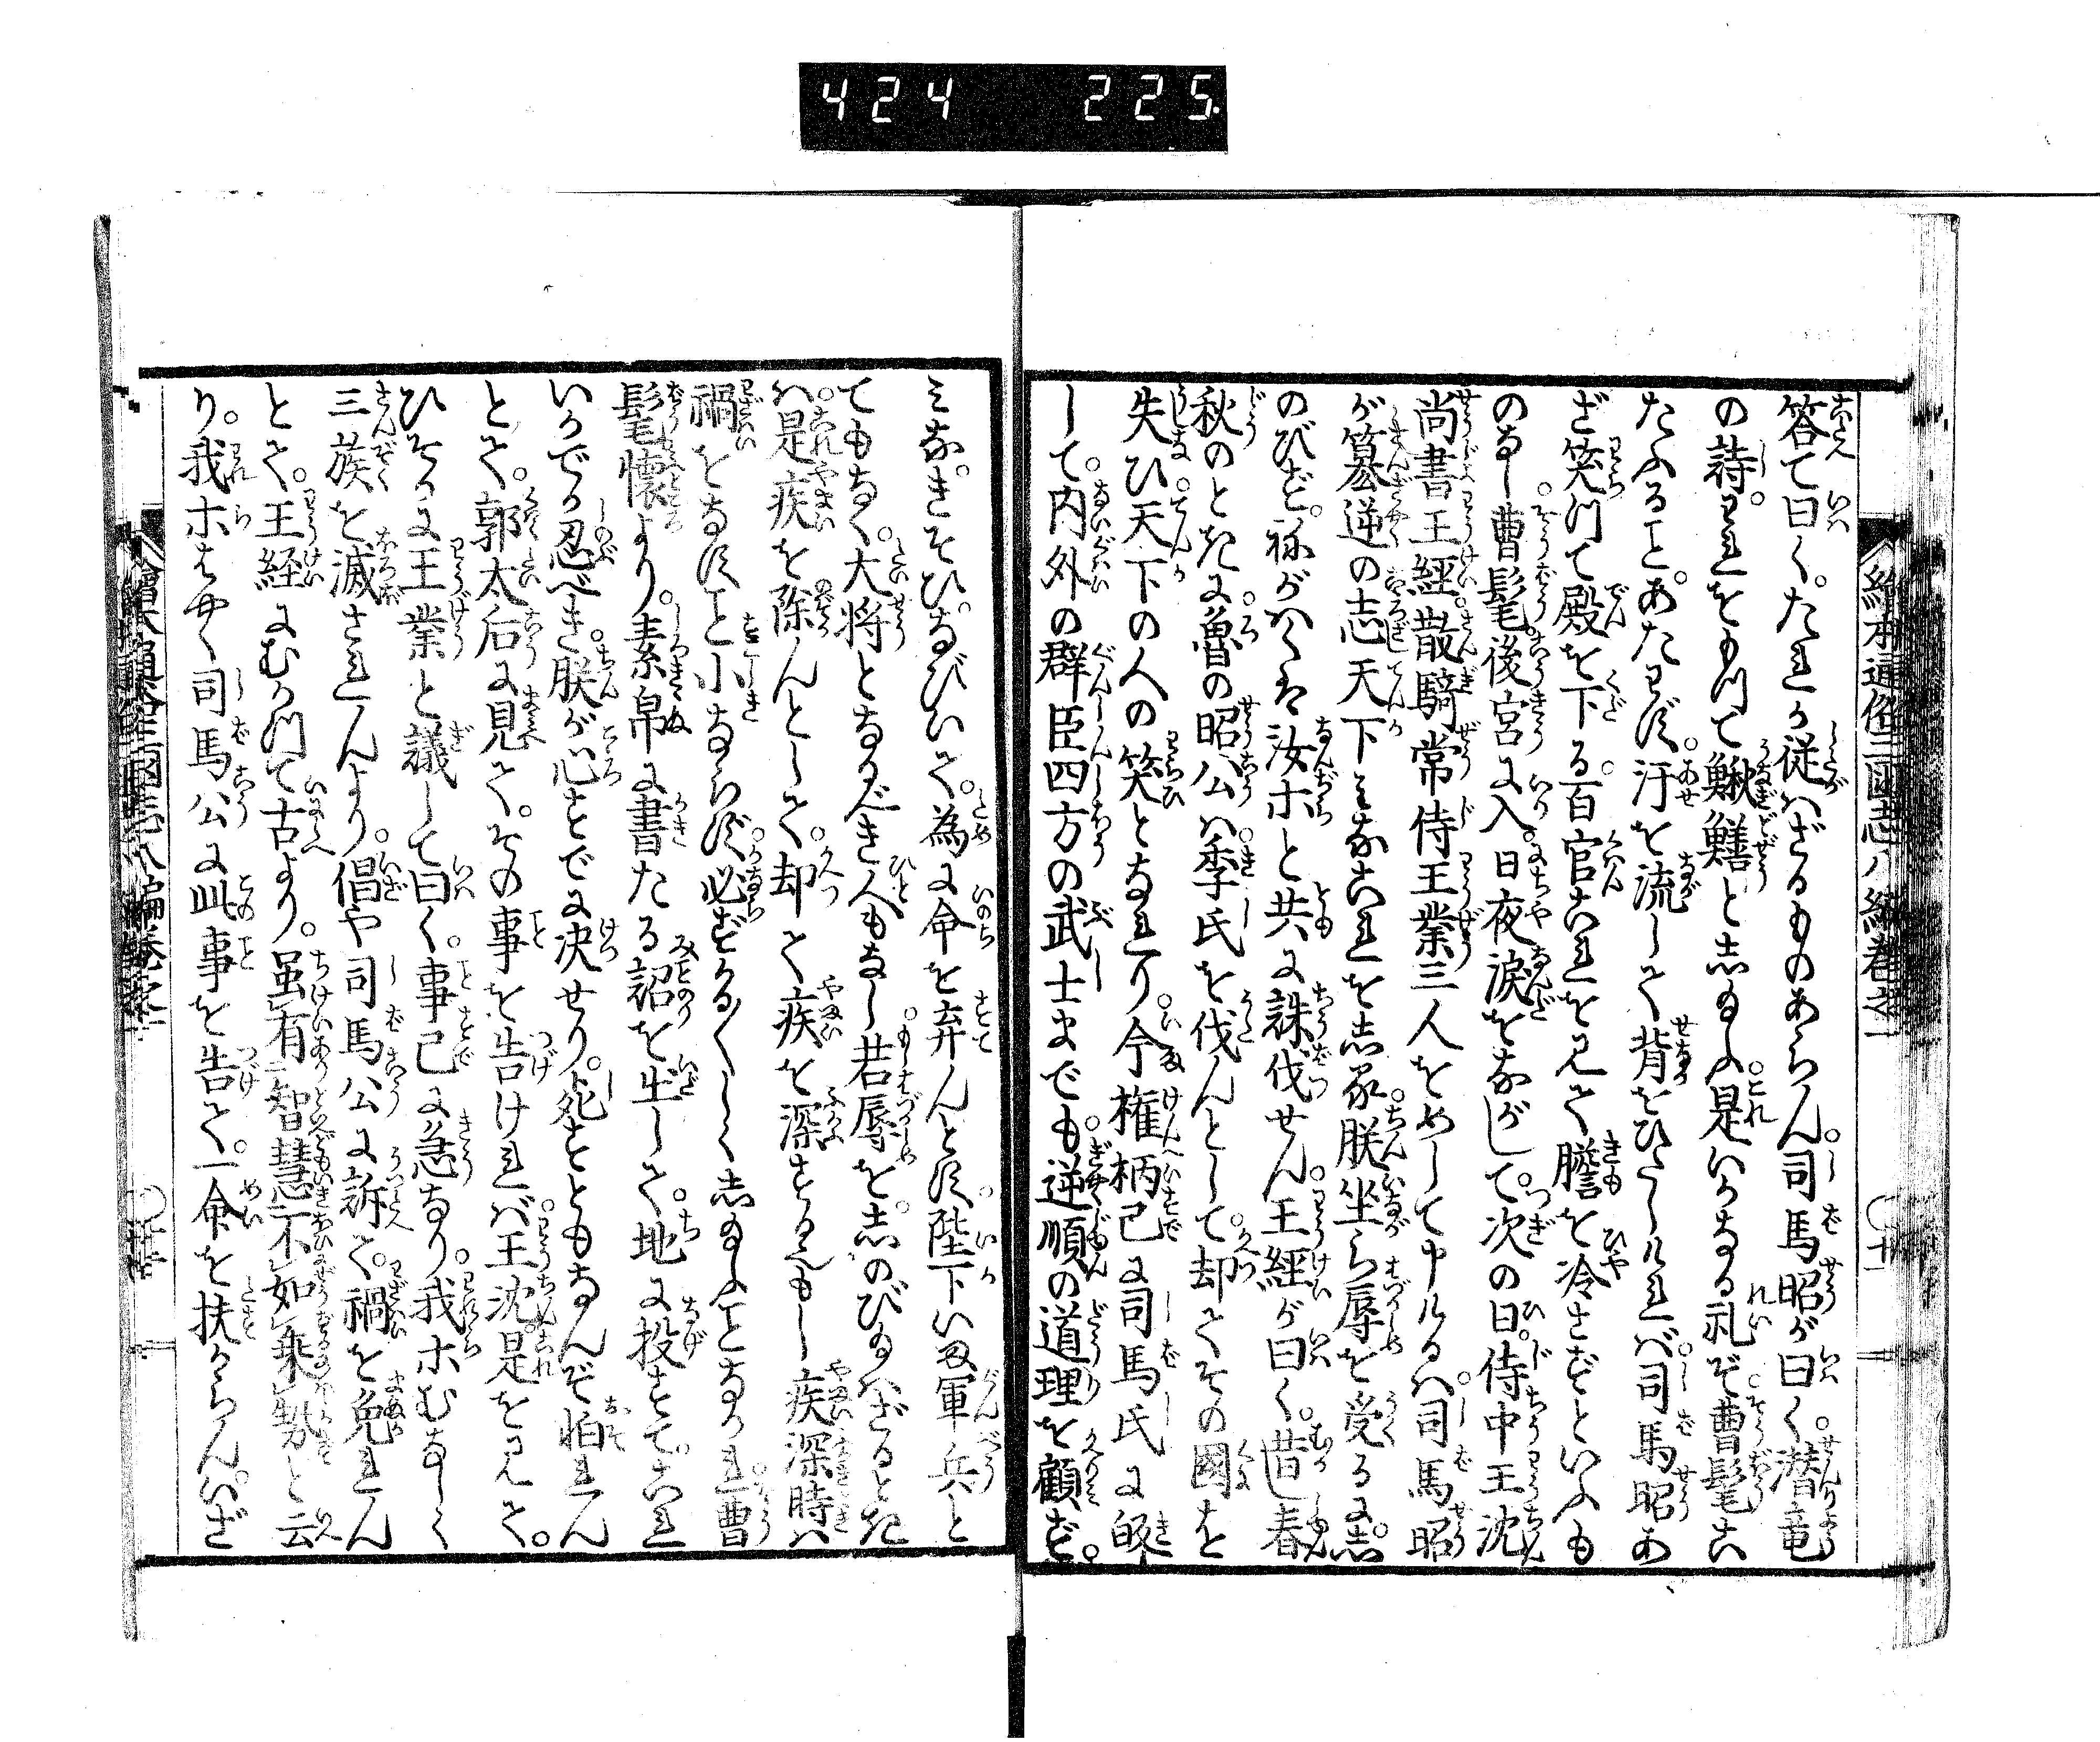 424 225
繪本通俗三國志八編卷之一
答て曰く。たれか従はざるものあらん。司馬昭が曰く。潜竜
の詩。われをもつて鰍鱔としたまふ。是いかなる礼ぞ。曹髦こ
たふることあたはず。汗を流して背をひたしければ。司馬昭あ
ざ笑つて殿を下る。百官これを見て膽を冷さずといふも
のなし。曹髦後宮に入。日夜涙をながして。次の日。侍中王沈
尚書王經。散騎常侍王業三人をめして申けるは。司馬昭
が簒逆の志天下みなこれをしる。朕坐ら辱を受るにし
のびず。ねがはくは汝ホと共に誅伐せん。王經が曰く。昔し春
秋のときに。魯の昭公は。季氏を伐んとして。却てその國を
失ひ。天下の人の笑となれり。今権柄已に司馬氏に皈
して。内外の群臣四方の武士までも。逆順の道理を顧ず。
みなきそひなびいて。為に命を弃んとす。陛下いま軍兵と
てもなく。大将となるべき人もなし。若辱をしのびたまはざるとき
は。是疾を除んとして。却て疾を深するもし疾深時ハ
禍をなすこと小ならず。必ずかる〳〵しくしたまふことなかれ。曹
髦懐より。素帛に書たる詔を出して。地に投すて。これ
いかでか忍べき。朕が心すでに決せり。死すともなんぞ怕れん
とて。郭太后に見て。その事を告ければ。王沈是を見て。
ひそかに王業と議して曰く。事已に急なり。我ホむなしく
三族を滅されんより。倡や司馬公に訴て。禍を免れん
とて。王經にむかつて古より。虽有智慧不如乗勢と云
り。我ホはやく司馬公に此事を告て。一命を扶からん。いざ